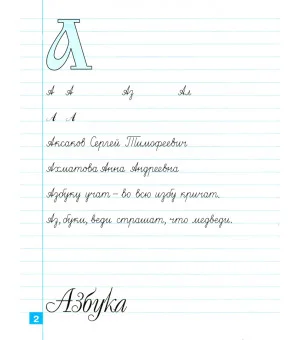 А
А А Аз Ал
А А
Аксаков Сергей Тимофеевич
Ахматова Анна Андреевна
Азбуку учат – во всю избу кричат.
Аз, буки, веди страшат, что медведи.
Азбука
2